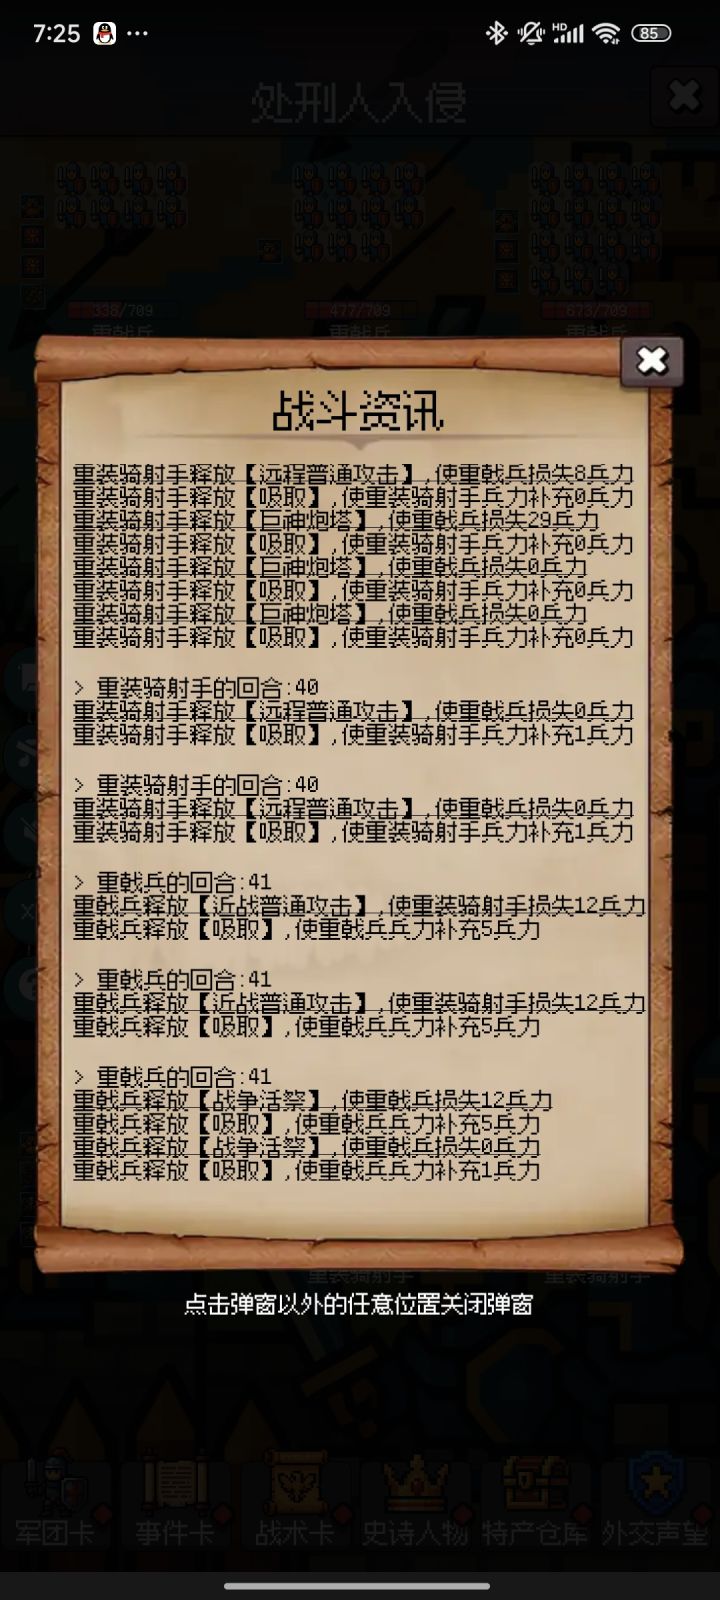 7:25
HD
85
处刑人入侵
338/709
477/709
673/709
重戟兵
重戟兵
重戟兵
战斗资讯
重装骑射手释放【远程普通攻击】,使重戟兵损失8兵力
重装骑射手释放【吸取】,使重装骑射手兵力补充0兵力
重装骑射手释放【巨神炮塔】,使重戟兵损失29兵力
重装骑射手释放【吸取】,使重装骑射手兵力补充0兵力
重装骑射手释放【巨神炮塔】,使重戟兵损失0兵力
重装骑射手释放【吸取】,使重装骑射手兵力补充0兵力
重装骑射手释放【巨神炮塔】,使重戟兵损失0兵力
重装骑射手释放【吸取】,使重装骑射手兵力补充0兵力
> 重装骑射手的回合:40
重装骑射手释放【远程普通攻击】,使重戟兵损失0兵力
重装骑射手释放【吸取】,使重装骑射手兵力补充1兵力
> 重装骑射手的回合:40
重装骑射手释放【远程普通攻击】,使重戟兵损失0兵力
重装骑射手释放【吸取】,使重装骑射手兵力补充1兵力
> 重戟兵的回合:41
重戟兵释放【近战普通攻击】,使重装骑射手损失12兵力
重戟兵释放【吸取】,使重戟兵兵力补充5兵力
> 重戟兵的回合:41
重戟兵释放【近战普通攻击】,使重装骑射手损失12兵力
重戟兵释放【吸取】,使重戟兵兵力补充5兵力
> 重戟兵的回合:41
重戟兵释放【战争活祭】,使重戟兵损失12兵力
重戟兵释放【吸取】,使重戟兵兵力补充5兵力
重戟兵释放【战争活祭】,使重戟兵损失0兵力
重戟兵释放【吸取】,使重戟兵兵力补充1兵力
重装骑射手
重装骑射手
点击弹窗以外的任意位置关闭弹窗
军团卡
事件卡
战术卡
史诗人物
特产仓库
外交声望